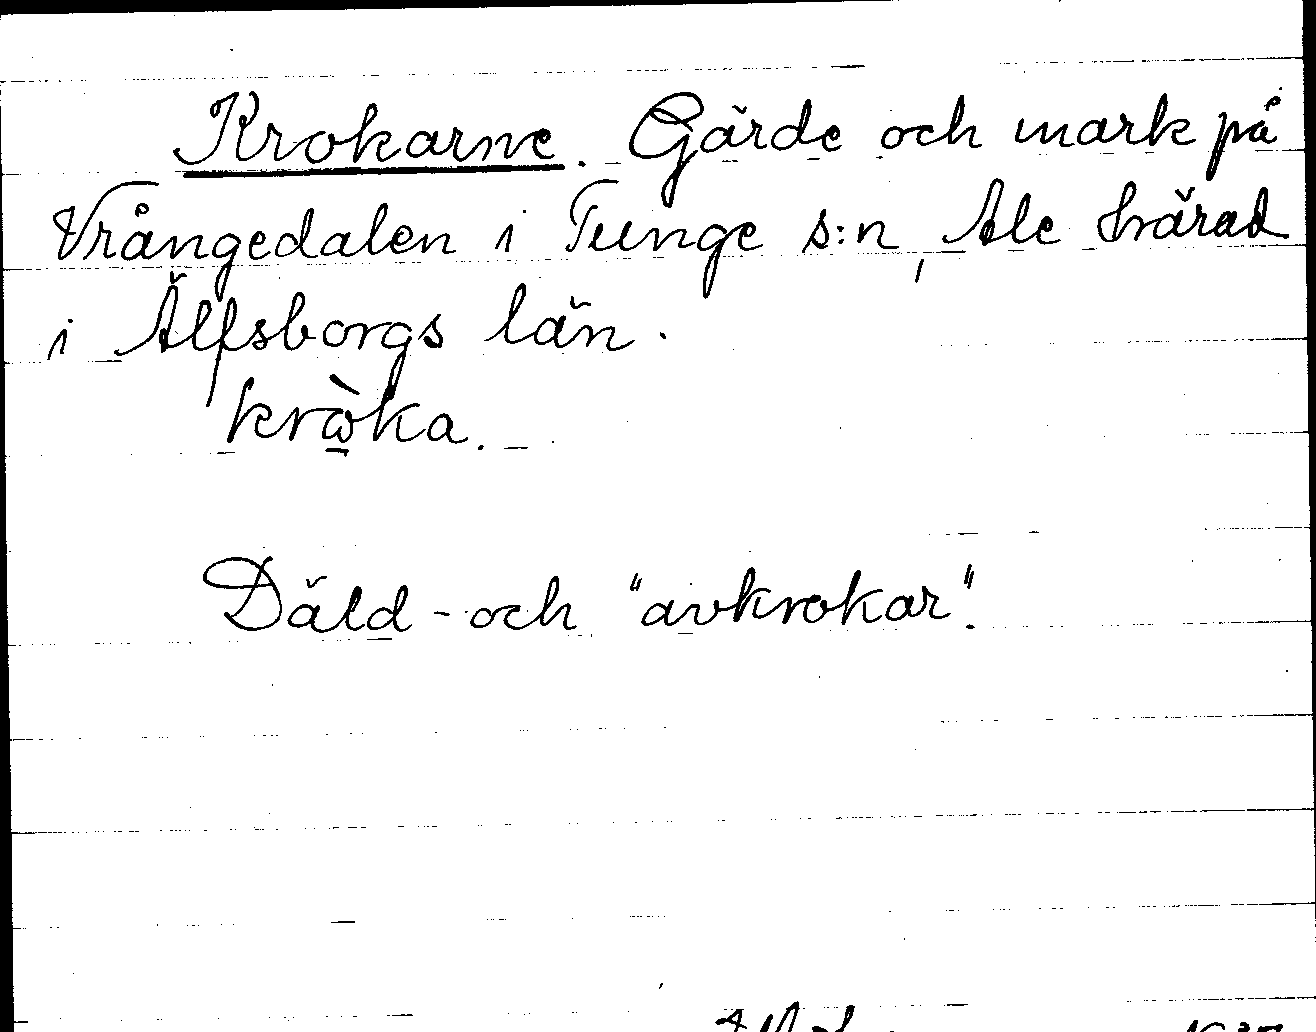 Krokarne. Gärde och mark på
Vrångedalen i Tunge s:n, Ale härad
i Älfsborgs län.
krὼ̲ka.
Däld- och "avkrokar".